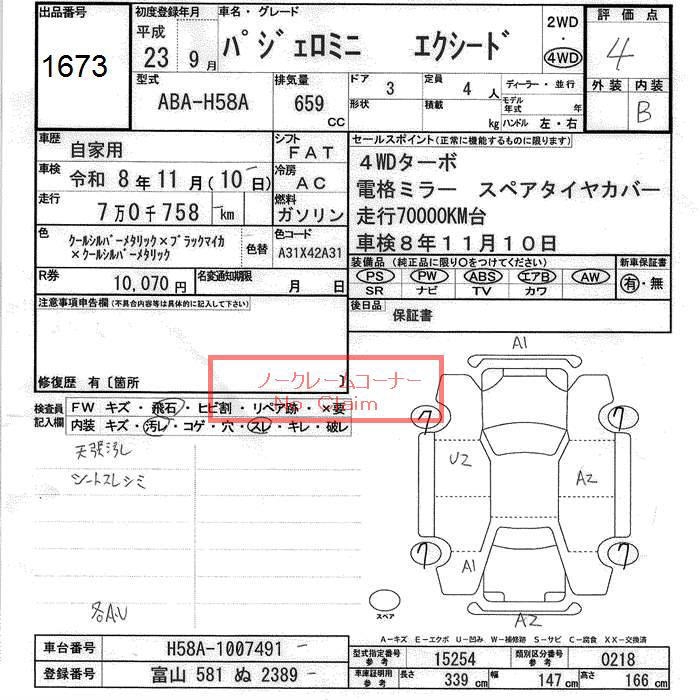 出品番号
1673
初度登録年月
平成
23 9 月
車名・グレード
パジェロミニ エクシード
2WD
・
4WD
評価点
4
外装 内装
B
型式
ABA-H58A
排気量
659
CC
ドア
3
形状
定員
4 人
積載
kg
ディーラー・並行
モデル年式 年
ハンドル 左・右
車歴
自家用
シフト
FAT
車検
令和 8年11月(10日)
冷房
AC
走行
7万0千758 km
燃料
ガソリン
色
クールシルバーメタリック×ブラックマイカ
×クールシルバーメタリック
色替
色コード
A31X42A31
R券
10,070円
名変通知期限
月 日
セールスポイント(正常に機能するものに限ります)
4WDターボ
電格ミラー スペアタイヤカバー
走行70000KM台
車検8年11月10日
装備品 (純正品に限り○をつけてください)
PS・PW・ABS・エアB・AW
SR ナビ TV カワ
新車保証書
有・無
後日品
保証書
注意事項申告欄(不具合内容等は具体的に記入して下さい)
修復歴 有〔箇所 〕
ノークレームコーナー
No Claim
検査員
記入欄
FW キズ・飛石・ヒビ割・リペア跡・×要
内装 キズ・汚レ・コゲ・穴・スレ・キレ・破レ
天張汚レ
シートスレシミ
各AU
A1
7
7
U2
A2
7
A1
7
スペア
A2
A-キズ E-エクボ U-凹み W-補修跡 S-サビ C-腐食 XX-交換済
車台番号
H58A-1007491
登録番号
富山 581 ぬ 2389
型式指定番号
参考
15254
類別区分番号
参考
0218
車庫証明用
参考
長さ
339 cm
幅
147 cm
高さ
166 cm